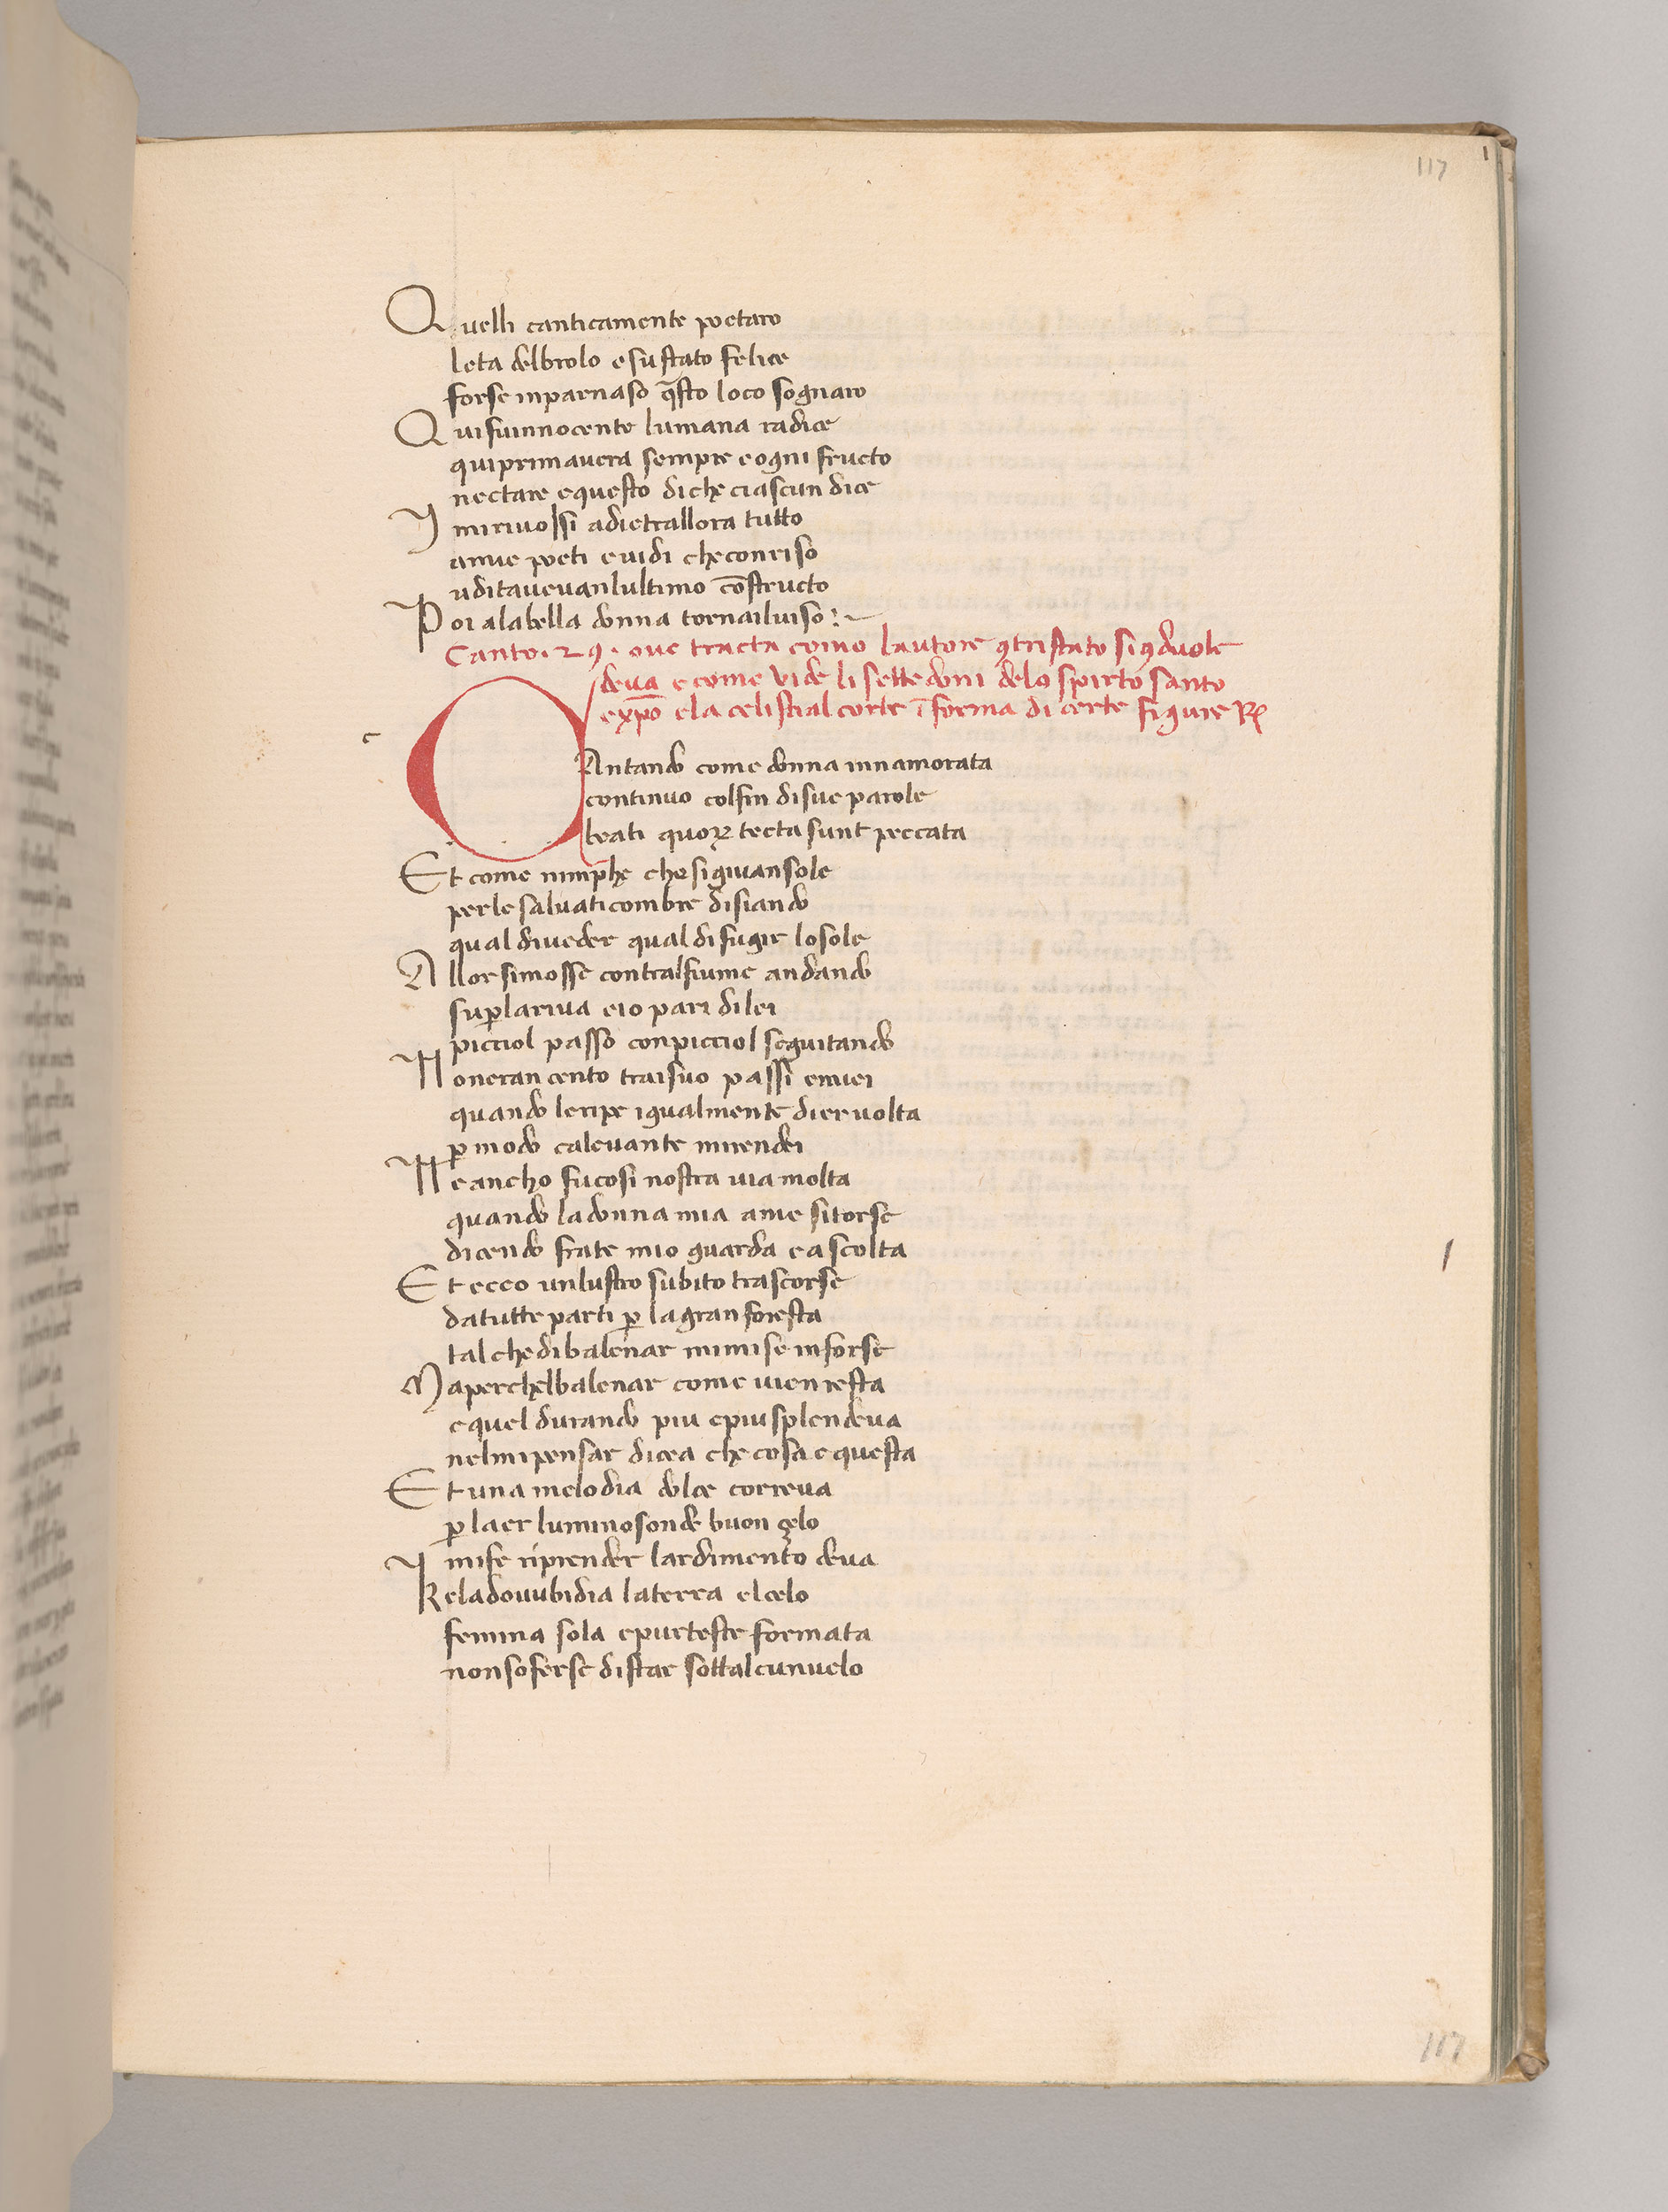 117
Quelli canticamente poetaro
leta delbrolo esustato felice
forse inparnaso q̄sto loco sognaro
Quifuinnocente lumana radice
quiprimavera sempre eogni fructo
nectare equesto diche ciascun dice
I mirivolssi adietrallora tutto
amie poeti evidi checonriso
uditavevanlultimo cōstructo
Poi alabella donna tornailuiso :~
Canto . 29 . ove tracta como lautore 9tristato si 9dvole
deva e come vide li sette doni delo spirto santo
expō ela celistial corte ī forma di certe figure R
c
CAntando come donna innamorata
continuo colfin disue parole
beati quoꝝ tecta sunt peccata
Et come nimphe chesigivansole
perle salvaticombre disiando
qual diveder qual difugir losole
Allorsimosse contralfiume andando
sup̲lariva eio pari dilei
picciol passo conpicciol seguitando
Noneran cento traisuo passi emiei
quando leripe igualmente diervolta
p̲ modo calevante mirendei
Neancho fucosi nostra via molta
quando ladonna mia ame sitorse
dicendo frate mio guarda eascolta
Et ecco unlustro subito trascorse
datutte parti p̲ lagran foresta
talchedibalenar mimise inforse
Maperchelbalenar come vien resta
equel durando piu epiusplendeva
nelmipensar dicea che cosa e questa
Et una melodia dolce correva
p̲ laer luminosonde buon çelo
I mife riprender lardimento deva
Keladovubidia laterra elcelo
femina sola epurteste formata
nonsoferse distar sottalcunvelo
117